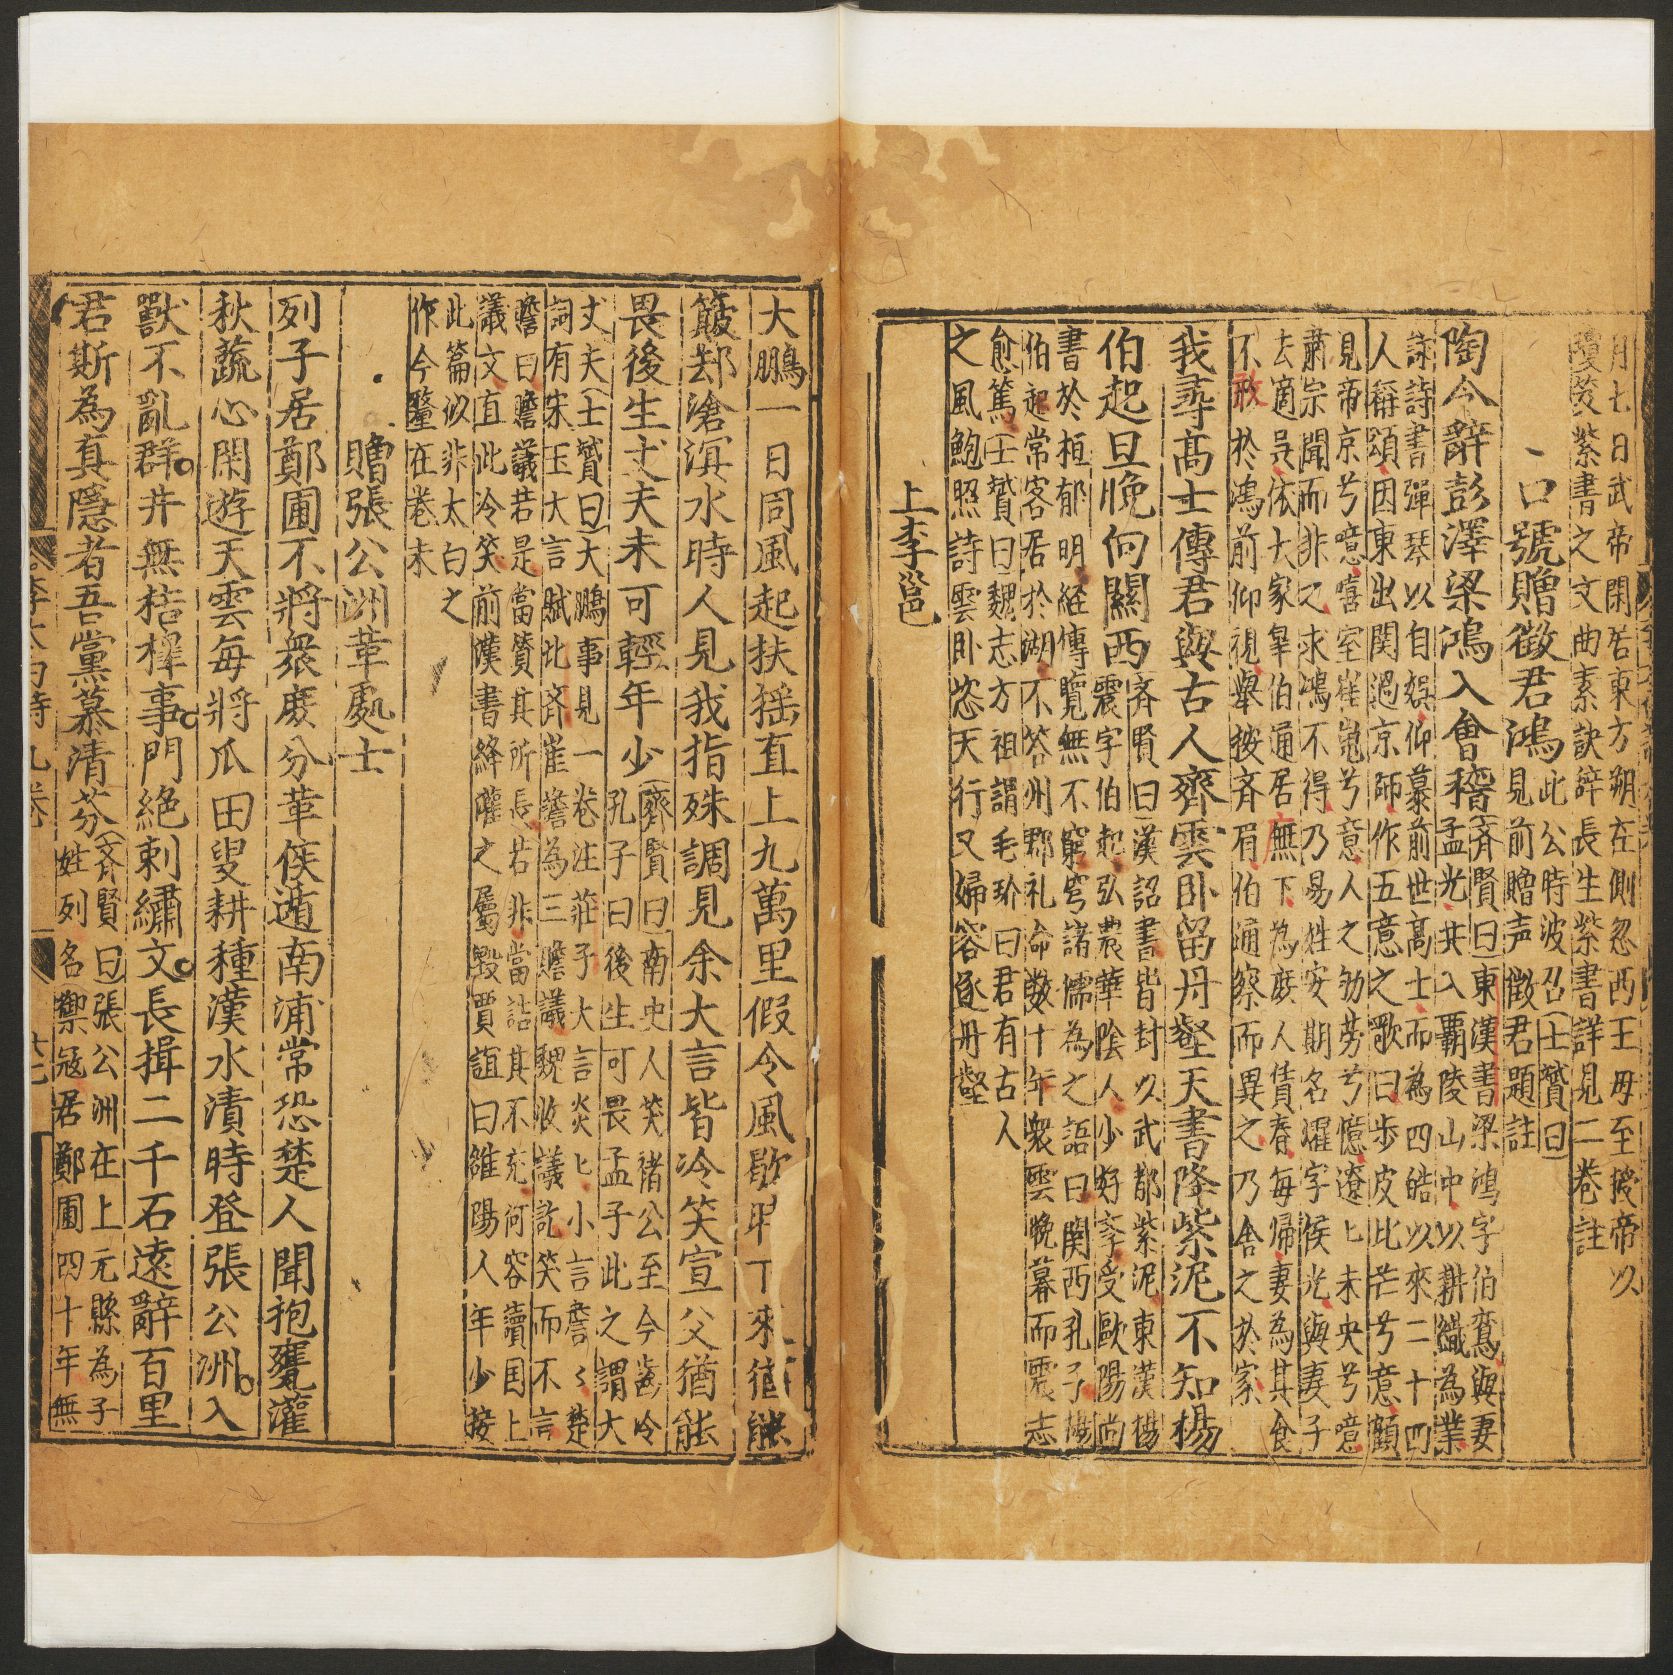 月七日武帝閑居東方朔在側忽西王母至授帝以
瓊笈紫書之文曲素訣辞長生紫書詳見二卷註
口號贈徵君鴻
此公時波召士贇曰
見前贈声徵君題註
陶令辭彭澤梁鴻入會稽
齊賢曰東漢書梁鴻字伯鸞與妻
孟光共入覇陵山中以耕織為業
詠詩書彈琴以自娯仰慕前世高士而為四皓以來二十四
人稱頌因東出関過京師作五意之歌曰步皮比芒兮意顧
見帝京兮噫嘻室崔嵬兮意人之劬劳兮噫遼匕未央兮噫
肅宗聞而非之求鴻不得乃易姓安期名濯字候光與妻子
去適吳依大家皐伯通居無下為庶人賃舂每帰妻為其食
不敢於鴻前仰視舉按斉眉伯通察而異之乃舍之於家
我尋高士傳君與古人齊雲卧留丹壑天書降紫泥不知楊
伯起旦晚向關西
斉賢曰漢詔書皆封以武都紫泥東漢楊
震字伯起弘農華陰人少好孝受歐陽尚
書於桓郁明経傳覽無不窮究諸儒為之語曰関西孔子楊
伯起常客居於湖不答州郡礼命數十年衆雲晚暮而震志
愈篤士贇曰魏志方祖謂毛玠曰君有古人
之風鮑照詩雲卧恣天行又婦容逐丹壑
上李邕
大鵬一日同風起扶摇直上九萬里假令風歇時下來猶能
簸却滄溟水時人見我指殊調見余大言皆冷笑宣父猶能
畏後生丈夫未可輕年少
齊賢曰南史人笑褚公至今齒冷
孔子曰後生可畏孟子此之謂大
丈夫士贇曰大鵬事見一卷注莊子大言炎匕小言詹〻楚
詞有宋玉大言賦北斉崔瞻為三瞻議魏收議訖笑而不言
瞻曰瞻議若是當賛其所長若非當詰其不충何容讀国上
議文直此冷笑前漢書絳灌之屬毀賈誼曰雒陽人年少按
此篇似非太白之
作今釐在卷末
贈張公洲革處士
列子居鄭圃不將衆庻分革侯遁南浦常恐楚人聞抱甕灌
秋蔬心閑遊天雲每將瓜田叟耕種漢水濆時登張公洲入
獸不亂群井無桔槹事門絶刺繡文長揖二千石遠辭百里
君斯為真隠者吾黨慕清芬
斉賢曰張公洲在上元縣為子
姓列名禦寇居鄭圃四十年無